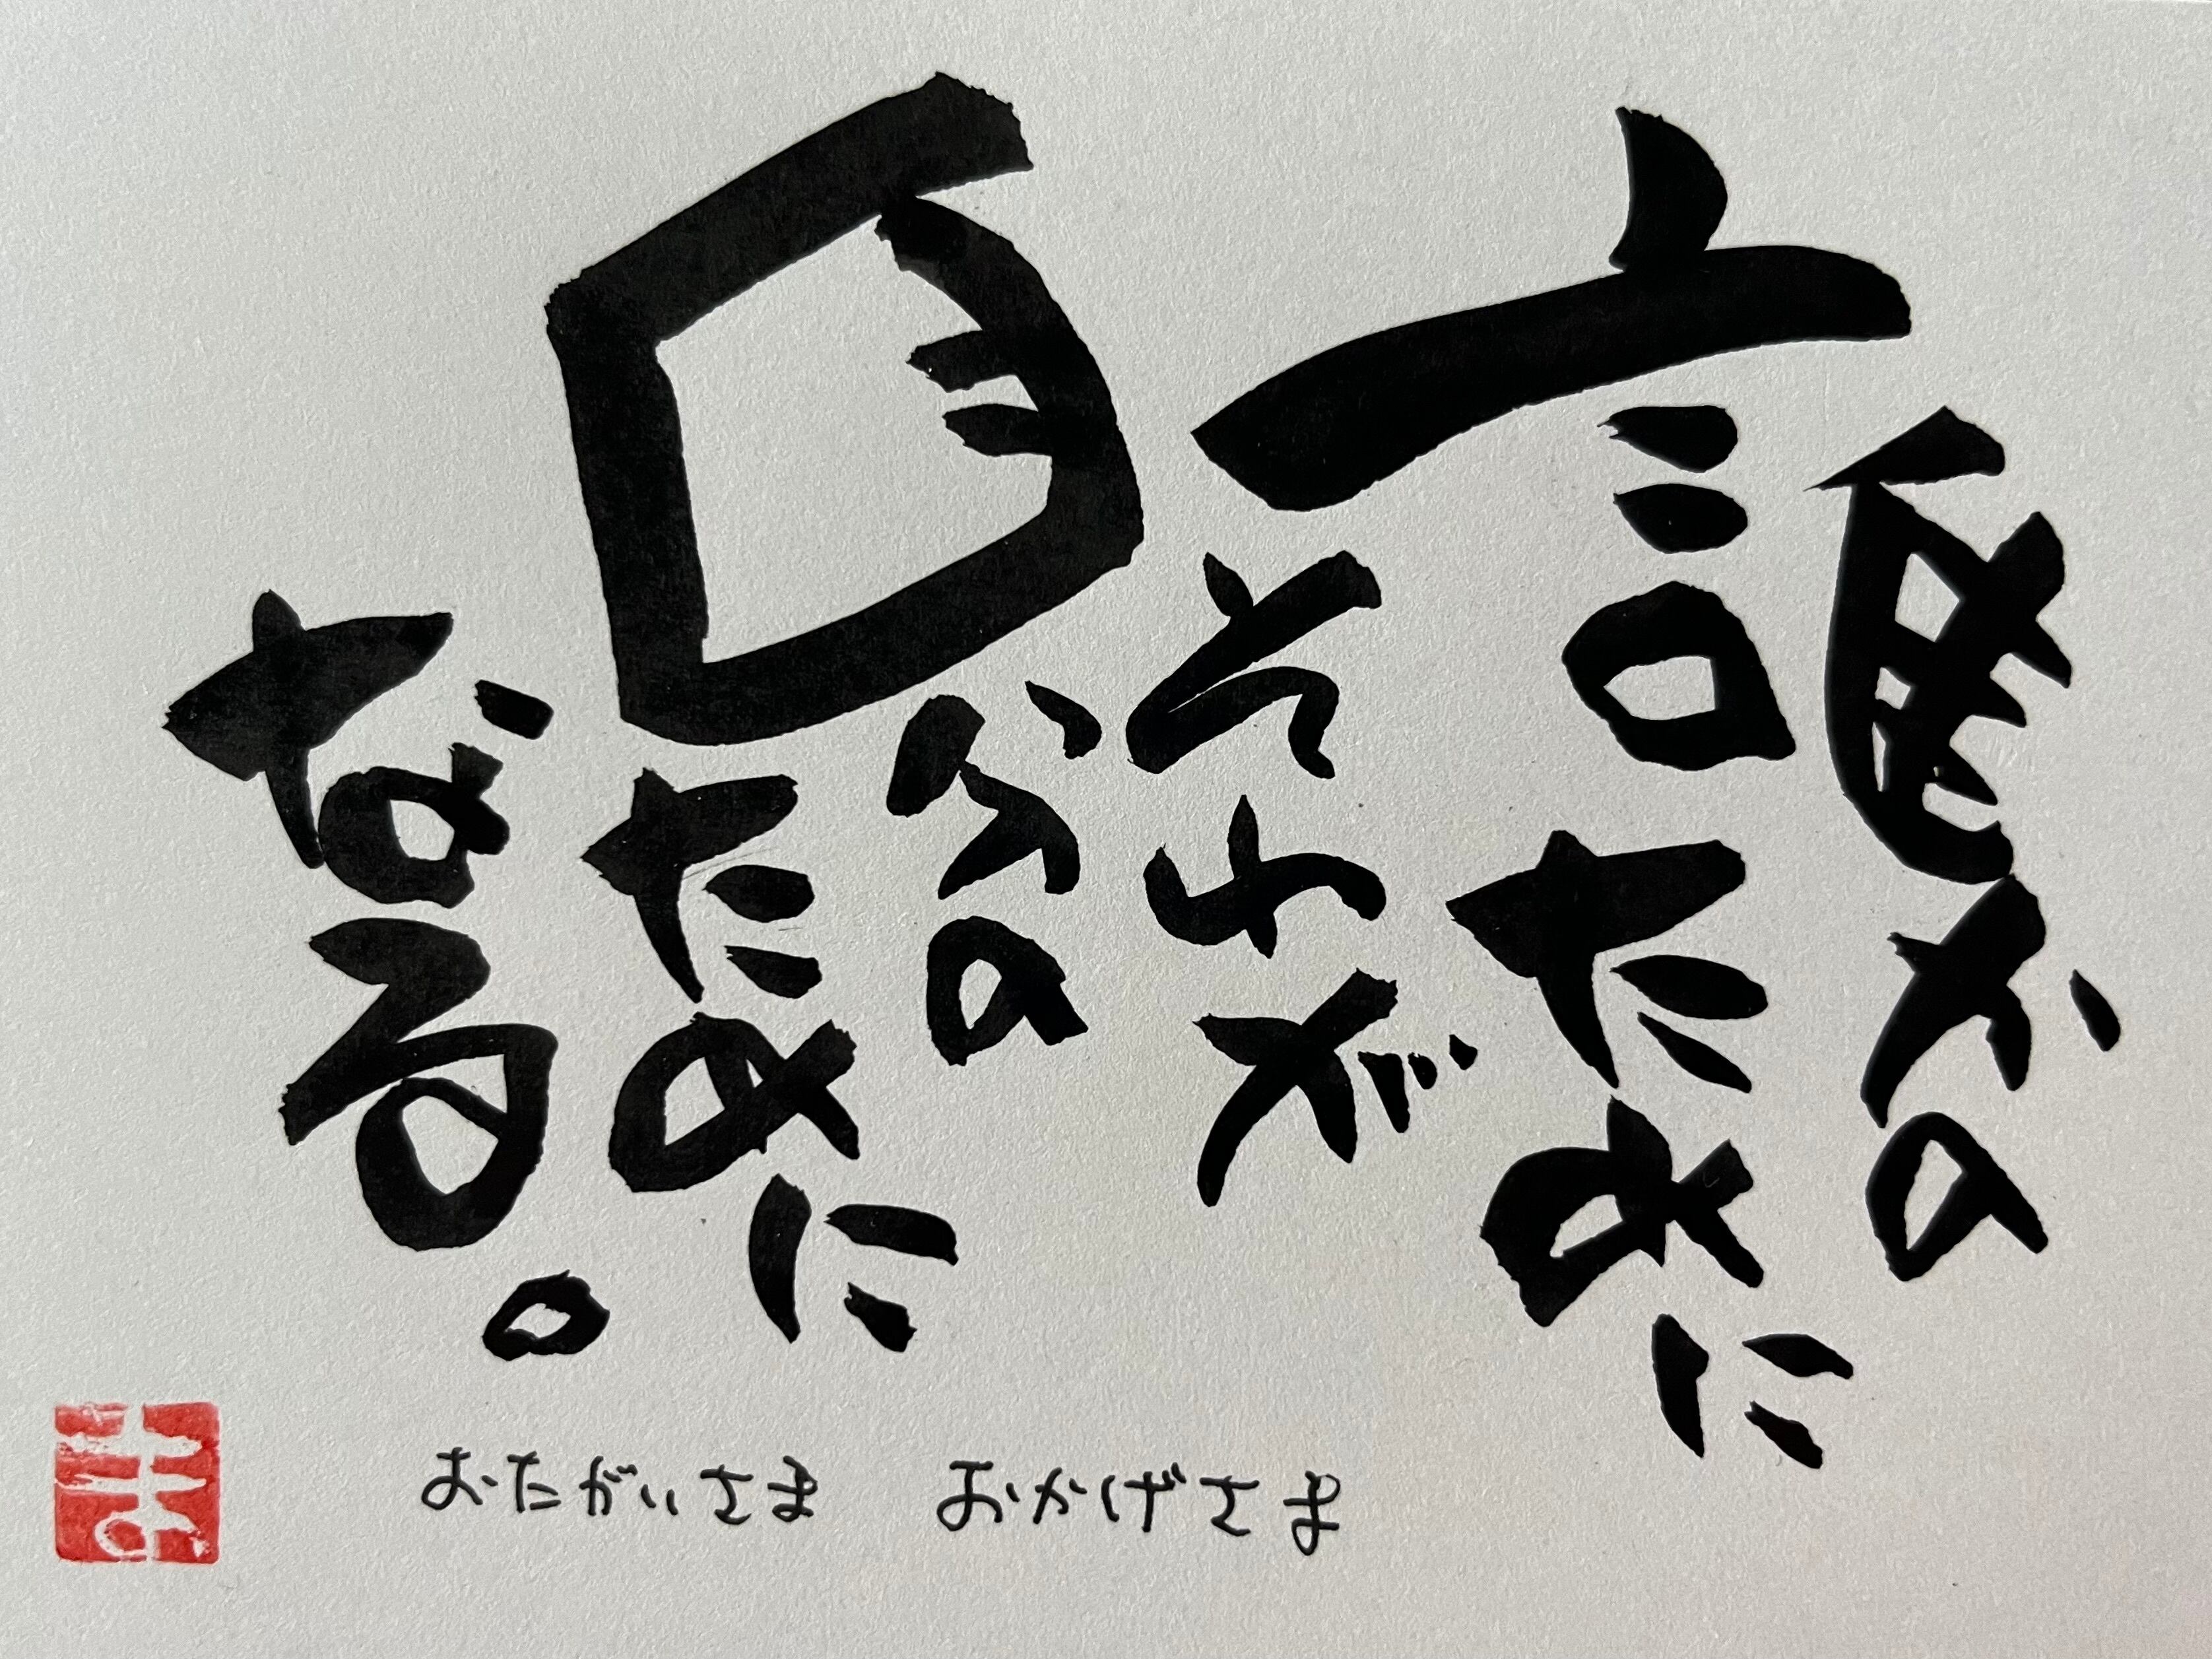 誰かの
ために
それが
自分の
ために
なる。
おたがいさま　おかげさま